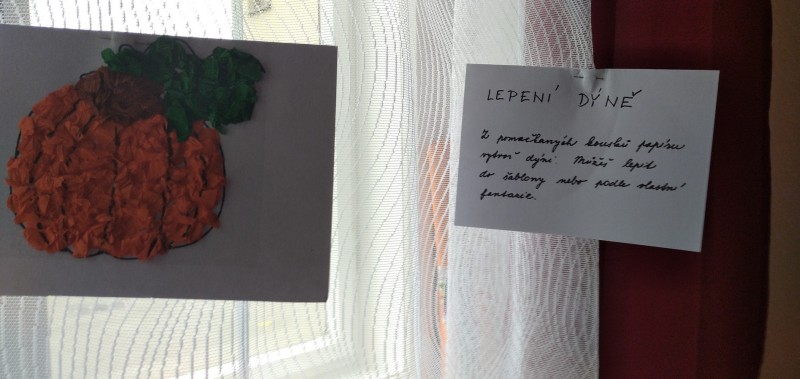 LEPENÍ DÝNĚ
Z pomačkaných kousků papíru
vytvoř dýni. Můžeš lepit
do šablony nebo podle vlastní
fantazie.